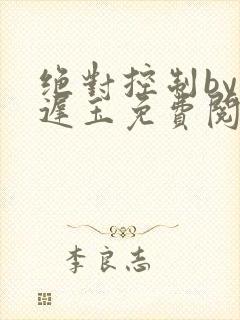 绝對控制by
遲玉免費閱
李良志